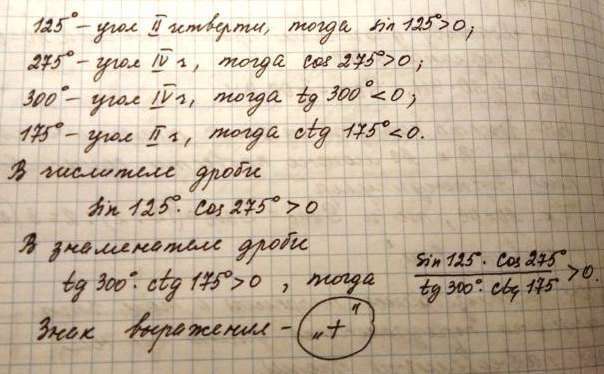 125° – угол II четверти, тогда sin 125° > 0;
275° – угол IV ч, тогда cos 275° > 0;
300° – угол IV ч, тогда tg 300° < 0;
175° – угол II ч, тогда ctg 175° < 0.
В числителе дроби
sin 125° · cos 275° > 0
В знаменателе дроби
tg 300° · ctg 175° > 0, тогда sin 125° · cos 275° / tg 300° · ctg 175 > 0.
Знак выражения – „+"